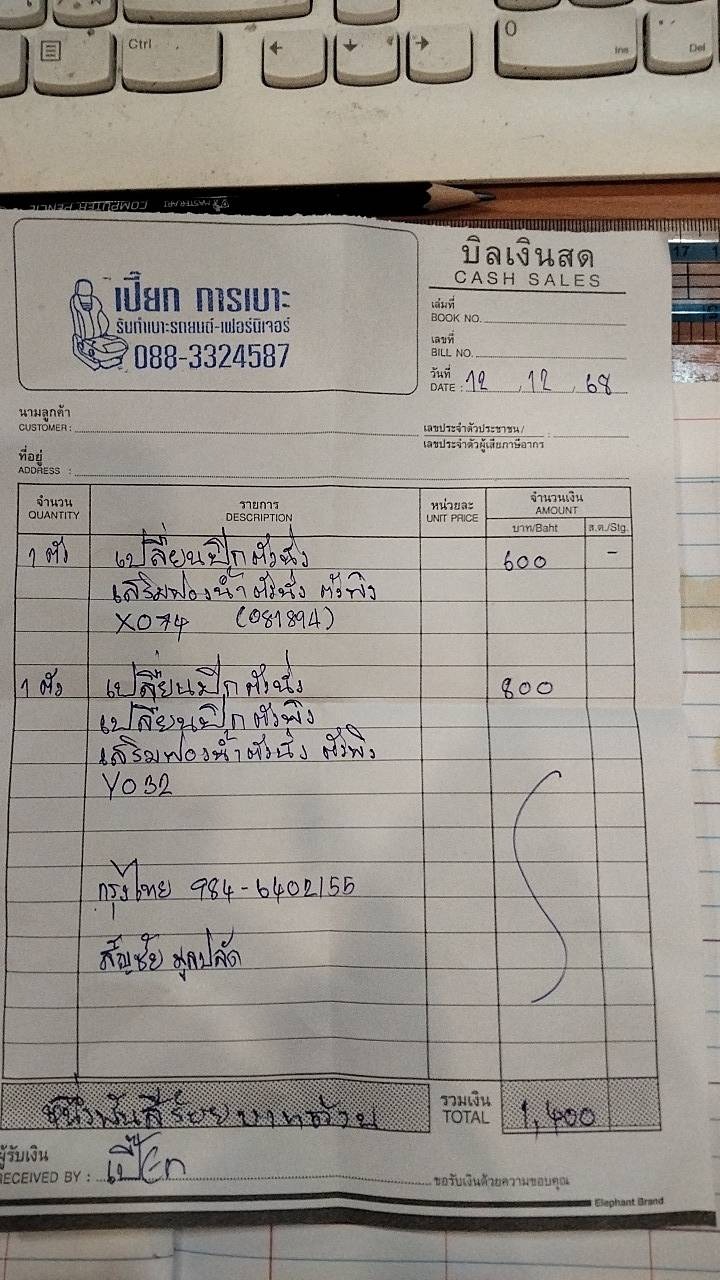 Ctrl
0
Ins
Del
COMPUTER PENCIL
MASTERART
17
เปี๊ยก การเบาะ
รับทำเบาะรถยนต์-เฟอร์นิเจอร์
088-3324587
บิลเงินสด
CASH SALES
เล่มที่
BOOK NO.
เลขที่
BILL NO.
วันที่
DATE : 12 , 12 , 68
นามลูกค้า
CUSTOMER :
เลขประจำตัวประชาชน /
เลขประจำตัวผู้เสียภาษีอากร :
ที่อยู่
ADDRESS :
จำนวน รายการ หน่วยละ จำนวนเงิน
QUANTITY DESCRIPTION UNIT PRICE AMOUNT
บาท/Baht ส.ต./Stg.
1 ตัว เปลี่ยนปีกตัวนั่ง 600 -
เสริมฟองน้ำตัวนั่ง ตัวพิง
X074 (081894)
1 ตัว เปลี่ยนปีกตัวนั่ง 800
เปลี่ยนปีกตัวพิง
เสริมฟองน้ำตัวนั่ง ตัวพิง
Y032
กรุงไทย 984-6402155
สัญชัย มูลปลัด
หนึ่งพันสี่ร้อยบาทถ้วน
รวมเงิน
TOTAL 1,400
ผู้รับเงิน
RECEIVED BY : เปี๊ยก ขอรับเงินด้วยความขอบคุณ
Elephant Brand